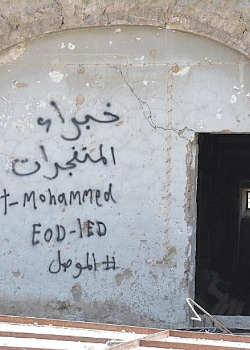 خبراء
المتفجرات
t-mohammed
EOD-IED
#الموصل